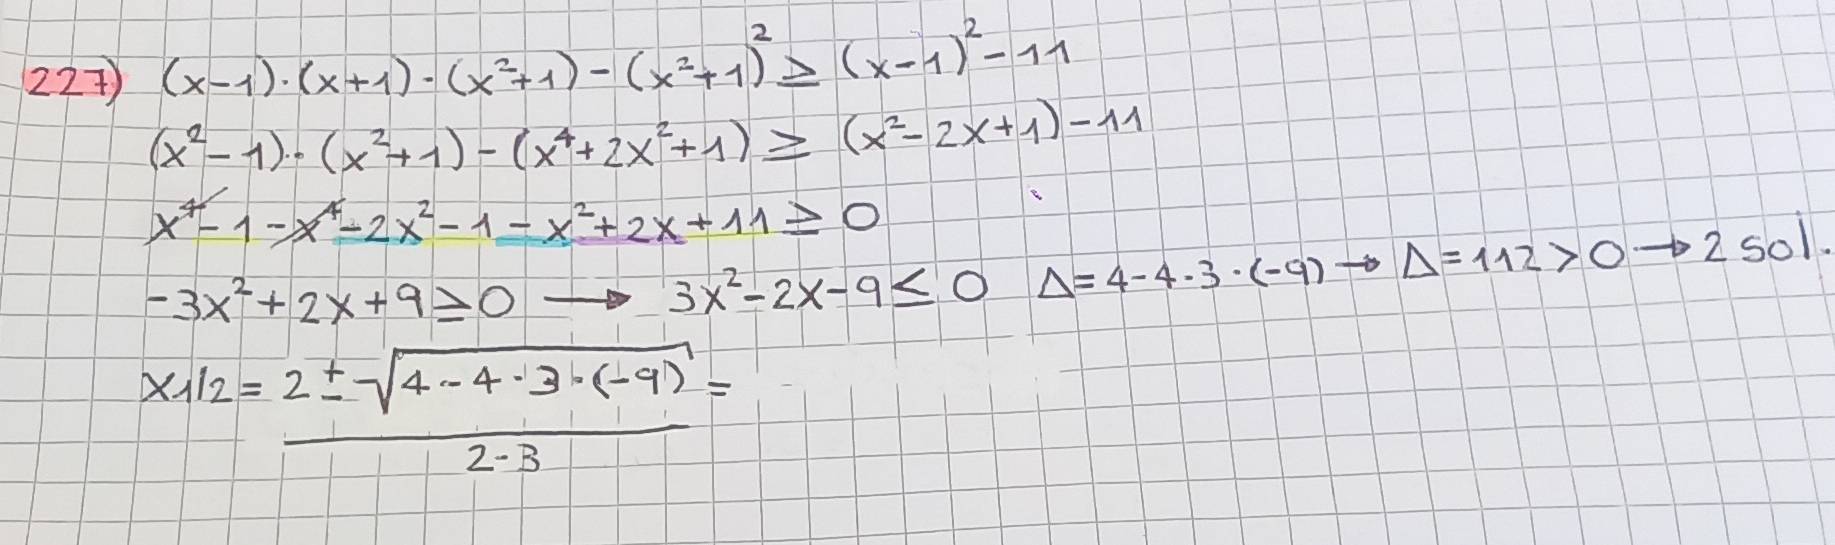 227) (x-1)·(x+1)·(x²+1)-(x²+1)² ≥ (x-1)²-11
(x²-1)·(x²+1)-(x⁴+2x²+1) ≥ (x²-2x+1)-11
x⁴-1-x⁴-2x²-1-x²+2x+11 ≥ 0
-3x²+2x+9 ≥ 0 → 3x²-2x-9 ≤ 0 Δ=4-4·3·(-9) → Δ=112>0 → 2 sol.
x1/2 = 2 ± √4-4·3·(-9) =
2·3